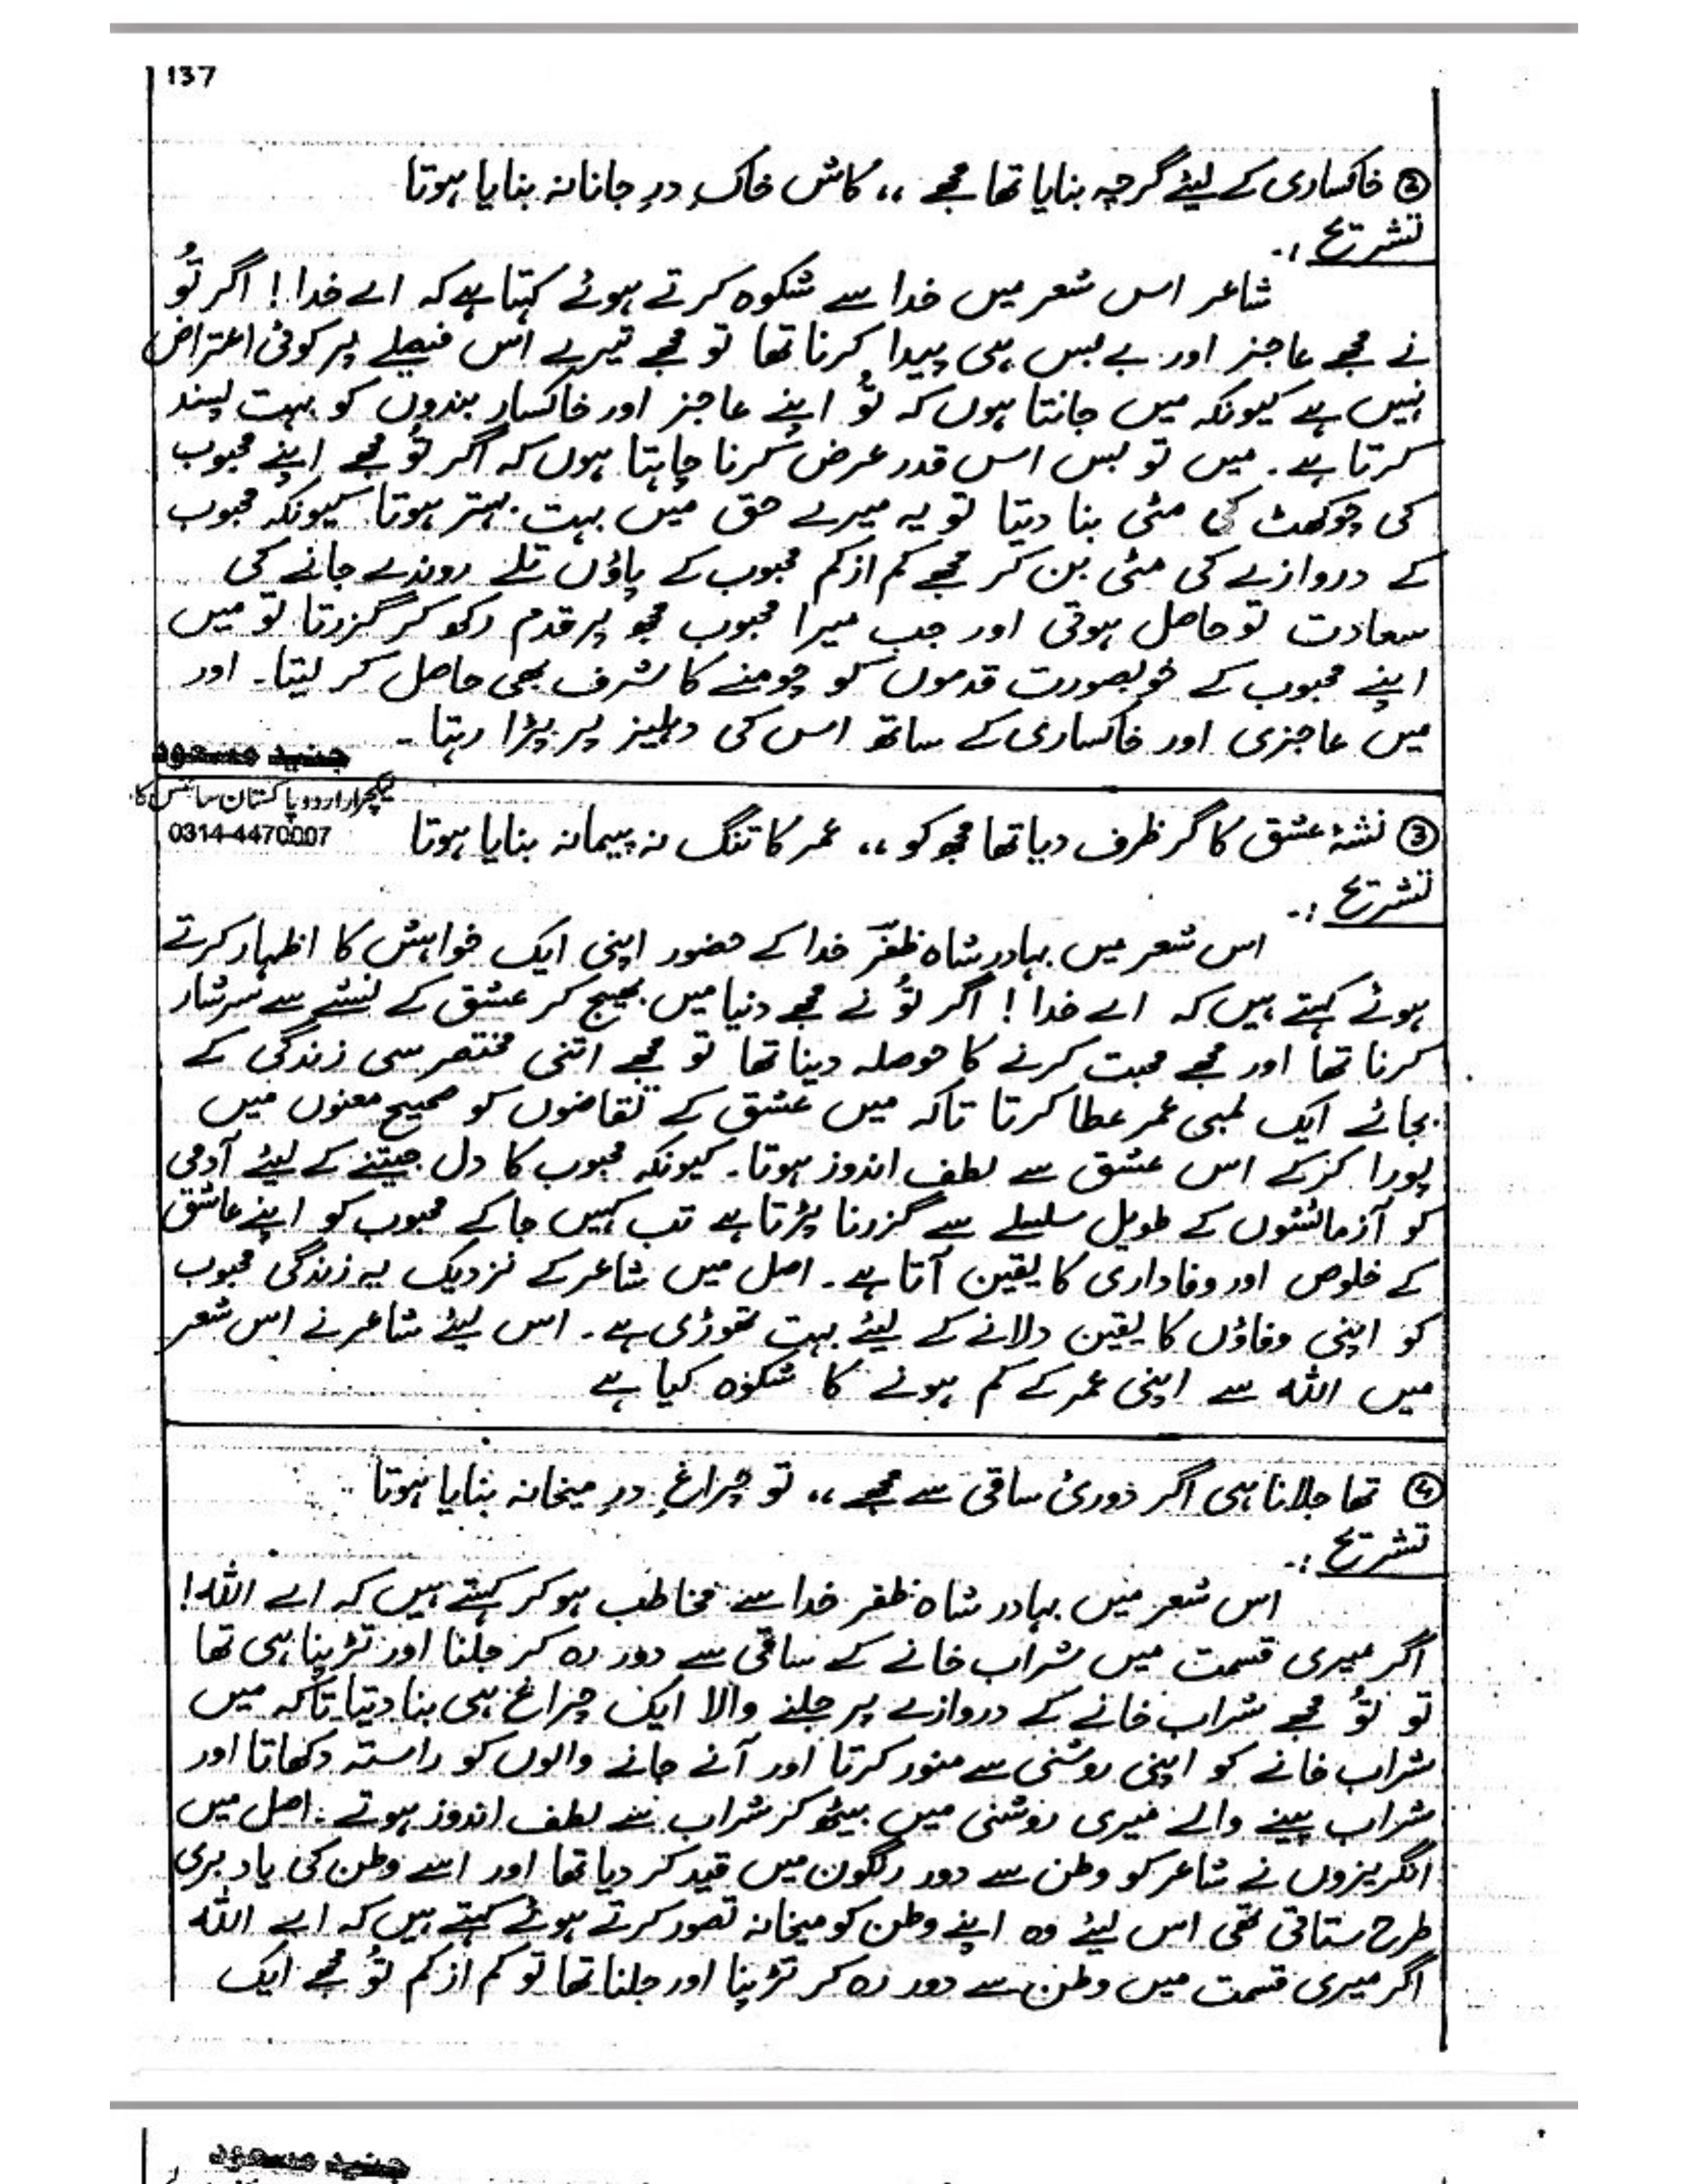 137
② خاکساری کے لیئے گرچہ بنایا تھا مجھے ،، کاش خاکِ درِ جانانہ بنایا ہوتا
تشریح :۔
شاعر اس شعر میں خدا سے شکوہ کرتے ہوئے کہتا ہے کہ اے خدا! اگر تُو
نے مجھے عاجز اور بے بس ہی پیدا کرنا تھا تو مجھے تیرے اس فیصلے پر کوئی اعتراض
نہیں ہے کیونکہ میں جانتا ہوں کہ تُو اپنے عاجز اور خاکسار بندوں کو بہت پسند
کرتا ہے۔ میں تو بس اس قدر عرض کرنا چاہتا ہوں کہ اگر تُو مجھے اپنے محبوب
کی چوکھٹ کی مٹی بنا دیتا تو یہ میرے حق میں بہت بہتر ہوتا کیونکہ محبوب
کے دروازے کی مٹی بن کر مجھے کم از کم محبوب کے پاؤں تلے روندے جانے کی
سعادت تو حاصل ہوتی اور جب میرا محبوب مجھ پر قدم رکھ کر گزرتا تو میں
اپنے محبوب کے خوبصورت قدموں کو چومنے کا شرف بھی حاصل کر لیتا۔ اور
میں عاجزی اور خاکساری کے ساتھ اس کی دہلیز پر پڑا رہتا۔
جنید مسعود
لیکچرار اردو پاکستان سائنس کا
0314-4470007
③ نشۂ عشق کا گر ظرف دیا تھا مجھ کو ،، عمر کا تنگ نہ پیمانہ بنایا ہوتا
تشریح :۔
اس شعر میں بہادر شاہ ظفرؔ خدا کے حضور اپنی ایک خواہش کا اظہار کرتے
ہوئے کہتے ہیں کہ اے خدا! اگر تُو نے مجھے دنیا میں بھیج کر عشق کے نشے سے سرشار
کرنا تھا اور مجھے محبت کرنے کا حوصلہ دینا تھا تو مجھے اتنی مختصر سی زندگی کے
بجائے ایک لمبی عمر عطا کرتا تاکہ میں عشق کے تقاضوں کو صحیح معنوں میں
پورا کر کے اس عشق سے لطف اندوز ہوتا۔ کیونکہ محبوب کا دل جیتنے کے لیئے آدمی
کو آزمائشوں کے طویل سلسلے سے گزرنا پڑتا ہے تب کہیں جا کے محبوب کو اپنے عاشق
کے خلوص اور وفاداری کا یقین آتا ہے۔ اصل میں شاعر کے نزدیک یہ زندگی محبوب
کو اپنی وفاؤں کا یقین دلانے کے لیئے بہت تھوڑی ہے۔ اس لیئے شاعر نے اس شعر
میں اللہ سے اپنی عمر کے کم ہونے کا شکوہ کیا ہے
④ تھا جلانا ہی اگر دوریٔ ساقی سے مجھے ،، تو چراغِ درِ میخانہ بنایا ہوتا
تشریح :۔
اس شعر میں بہادر شاہ ظفر خدا سے مخاطب ہو کر کہتے ہیں کہ اے اللہ!
اگر میری قسمت میں شراب خانے کے ساقی سے دور رہ کر جلنا اور تڑپنا ہی تھا
تو تُو مجھے شراب خانے کے دروازے پر جلنے والا ایک چراغ ہی بنا دیتا تاکہ میں
شراب خانے کو اپنی روشنی سے منور کرتا اور آنے جانے والوں کو راستہ دکھاتا اور
شراب پینے والے میری روشنی میں بیٹھ کر شراب سے لطف اندوز ہوتے۔ اصل میں
انگریزوں نے شاعر کو وطن سے دور رنگون میں قید کر دیا تھا اور اسے وطن کی یاد بری
طرح ستاتی تھی اس لیئے وہ اپنے وطن کو میخانہ تصور کرتے ہوئے کہتے ہیں کہ اے اللہ
اگر میری قسمت میں وطن سے دور رہ کر تڑپنا اور جلنا تھا تو کم از کم تُو مجھے ایک
جنید مسعود